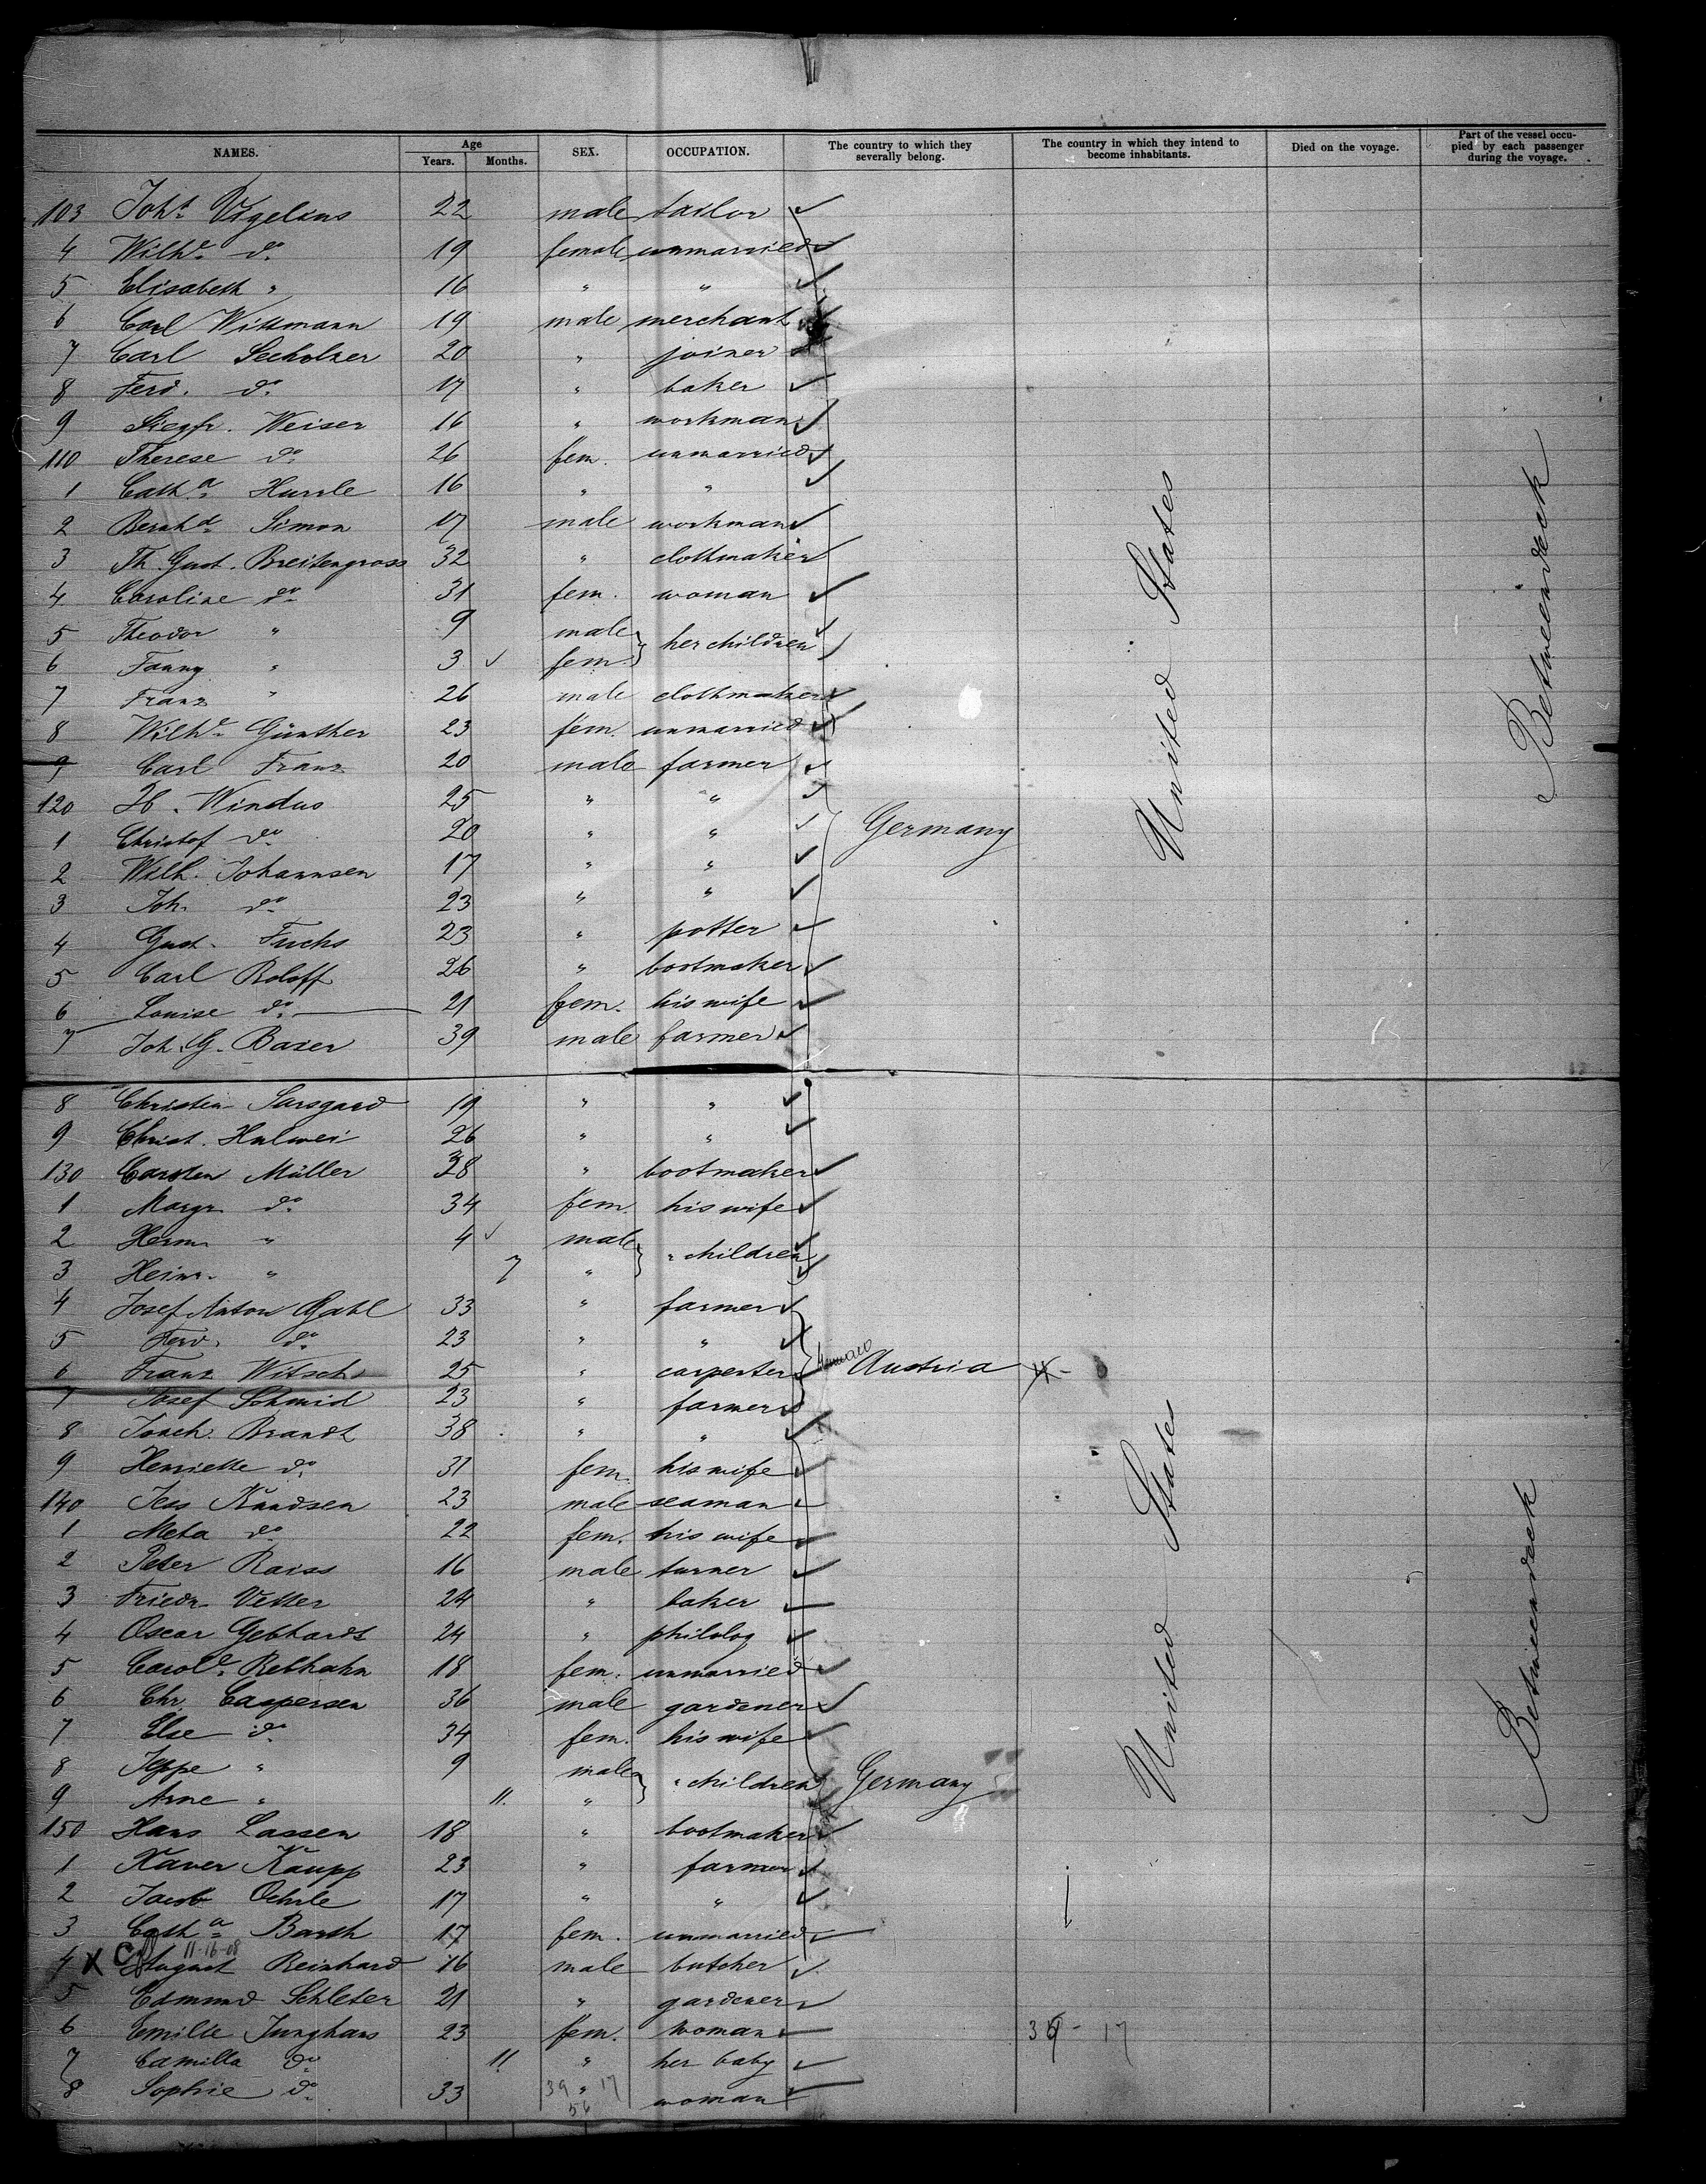 NAMES. Age SEX. OCCUPATION. The country to which they severally belong. The country in which they intend to become inhabitants. Died on the voyage. Part of the vessel occupied by each passenger during the voyage.
Years. Months.
103 Joh.s Vigelius 22 male tailor
4 Wilh.e do 19 female unmarried
5 Elisabeth " 16 " "
6 Carl Wittmann 19 male merchant
7 Carl Seeholzer 20 " joiner
8 Ferd. do 17 " baker
9 Siegfr. Weiser 16 " workman
110 Therese do 26 fem. unmarried
1 Cath.a Hurrle 16 " "
2 Bernhd Simon 17 male workman
3 Th. Gust. Breitengross 32 " clothmaker
4 Caroline do 31 fem. woman
5 Theodor " 9 male } her children
6 Fanny " 3 fem.
7 Franz " 26 male clothmaker
8 Wilh.e Günther 23 fem. unmarried
9 Carl Franz 20 male farmer
120 H. Windus 25 " "
1 Christof do 20 " " Germany United States Betweendeck
2 Wilh. Johannsen 17 " "
3 Joh. do 23 " "
4 Gust. Fuchs 23 " potter
5 Carl Roloff 26 " bootmaker
6 Louise do 21 fem. his wife
7 Joh. G. Bazer 39 male farmer
8 Christen Sarsgard 19 " "
9 Christ. Hulwei 26 " "
130 Carsten Müller 38 " bootmaker
1 Margr. do 34 fem. his wife
2 Herm. " 4 male } " children
3 Heinr. " 7 "
4 Josef Anton Gahl 33 " farmer
5 Ferd. do 23 " "
6 Franz Witsch 25 " carpenter Austria 4 -
7 Josef Schmid 23 " farmer
8 Joach. Brandt 38 " "
9 Henriette do 31 fem. his wife
140 Jess Knudsen 23 male seaman
1 Meta do 22 fem. his wife
2 Peter Raiss 16 male turner
3 Friedr. Vetter 24 " baker
4 Oscar Gebhardt 24 " philolog
5 Carol.e Rebhahn 18 fem. unmarried
6 Chr Caspersen 36 male gardener
7 Else do 34 fem. his wife
8 Jeppe " 9 male } " children Germany United States Betweendeck
9 Arne " 11. "
150 Hans Lassen 18 " bootmaker
1 Xaver Kaupp 23 " farmer
2 Jacob Oehrle 17 " "
3 Cath.a Barth 17 fem. unmarried
11-16-08
4 X August Reinhard 16 male butcher
5 Edmund Schleter 21 " gardener
6 Emilie Junghans 23 fem. woman 39 - 17
7 Camilla do 11 " her baby
8 Sophie do 33 " woman
39 17
56